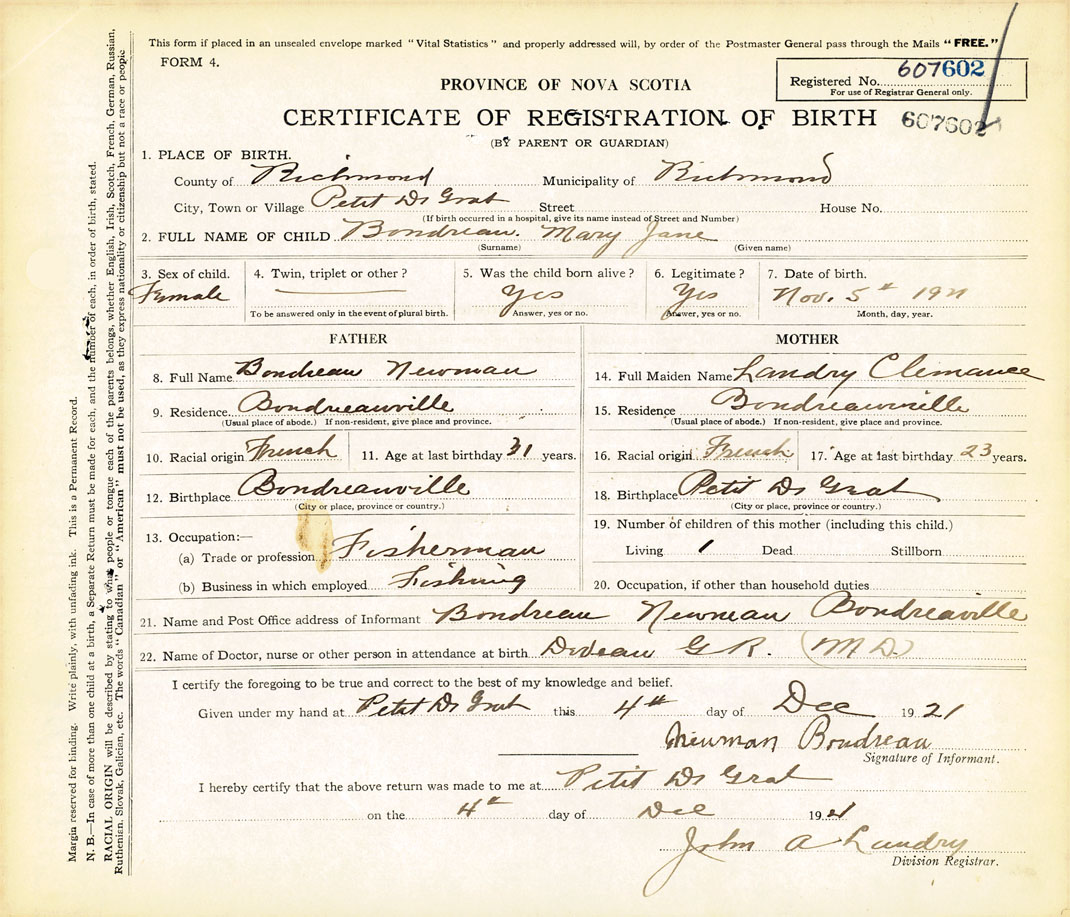 This form if placed in an unsealed envelope marked "Vital Statistics" and properly addressed will, by order of the Postmaster General pass through the Mails "FREE."
FORM 4.
Registered No. 607602
For use of Registrar General only.
607602
PROVINCE OF NOVA SCOTIA
CERTIFICATE OF REGISTRATION OF BIRTH
(BY PARENT OR GUARDIAN)
1. PLACE OF BIRTH.
County of Richmond Municipality of Richmond
City, Town or Village Petit De Grat Street House No.
(If birth occurred in a hospital, give its name instead of Street and Number)
2. FULL NAME OF CHILD Boudreau. Mary Jane
(Surname) (Given name)
3. Sex of child. 4. Twin, triplet or other? 5. Was the child born alive? 6. Legitimate? 7. Date of birth.
Female Yes Yes Nov. 5th 1921
To be answered only in the event of plural birth. Answer, yes or no. Answer, yes or no. Month, day, year.
FATHER
8. Full Name Boudreau Newman
9. Residence Boudreauville
(Usual place of abode.) If non-resident, give place and province.
10. Racial origin French 11. Age at last birthday 31 years.
12. Birthplace Boudreauville
(City or place, province or country.)
13. Occupation:—
(a) Trade or profession Fisherman
(b) Business in which employed Fishing
MOTHER
14. Full Maiden Name Landry Clemance
15. Residence Boudreauville
(Usual place of abode.) If non-resident, give place and province.
16. Racial origin French 17. Age at last birthday 23 years.
18. Birthplace Petit De Grat
(City or place, province or country.)
19. Number of children of this mother (including this child.)
Living 1 Dead Stillborn
20. Occupation, if other than household duties
21. Name and Post Office address of Informant Boudreau Newman Boudreaville
22. Name of Doctor, nurse or other person in attendance at birth Deveau G R. (M D.)
I certify the foregoing to be true and correct to the best of my knowledge and belief.
Given under my hand at Petit De Grat this 4th day of Dec 1921
Newman Boudreau
Signature of Informant.
I hereby certify that the above return was made to me at Petit De Grat
on the 4th day of Dec 1921
John A Landry
Division Registrar.
Margin reserved for binding. Write plainly, with unfading ink. This is a Permanent Record.
N. B.—In case of more than one child at a birth, a Separate Return must be made for each, and the number of each, in order of birth, stated.
RACIAL ORIGIN will be described by stating to what people or tongue each of the parents belongs, whether English, Irish, Scotch, French, German, Russian,
Ruthenian, Slovak, Galician, etc. The words "Canadian" or "American" must not be used, as they express nationality or citizenship but not a race or people